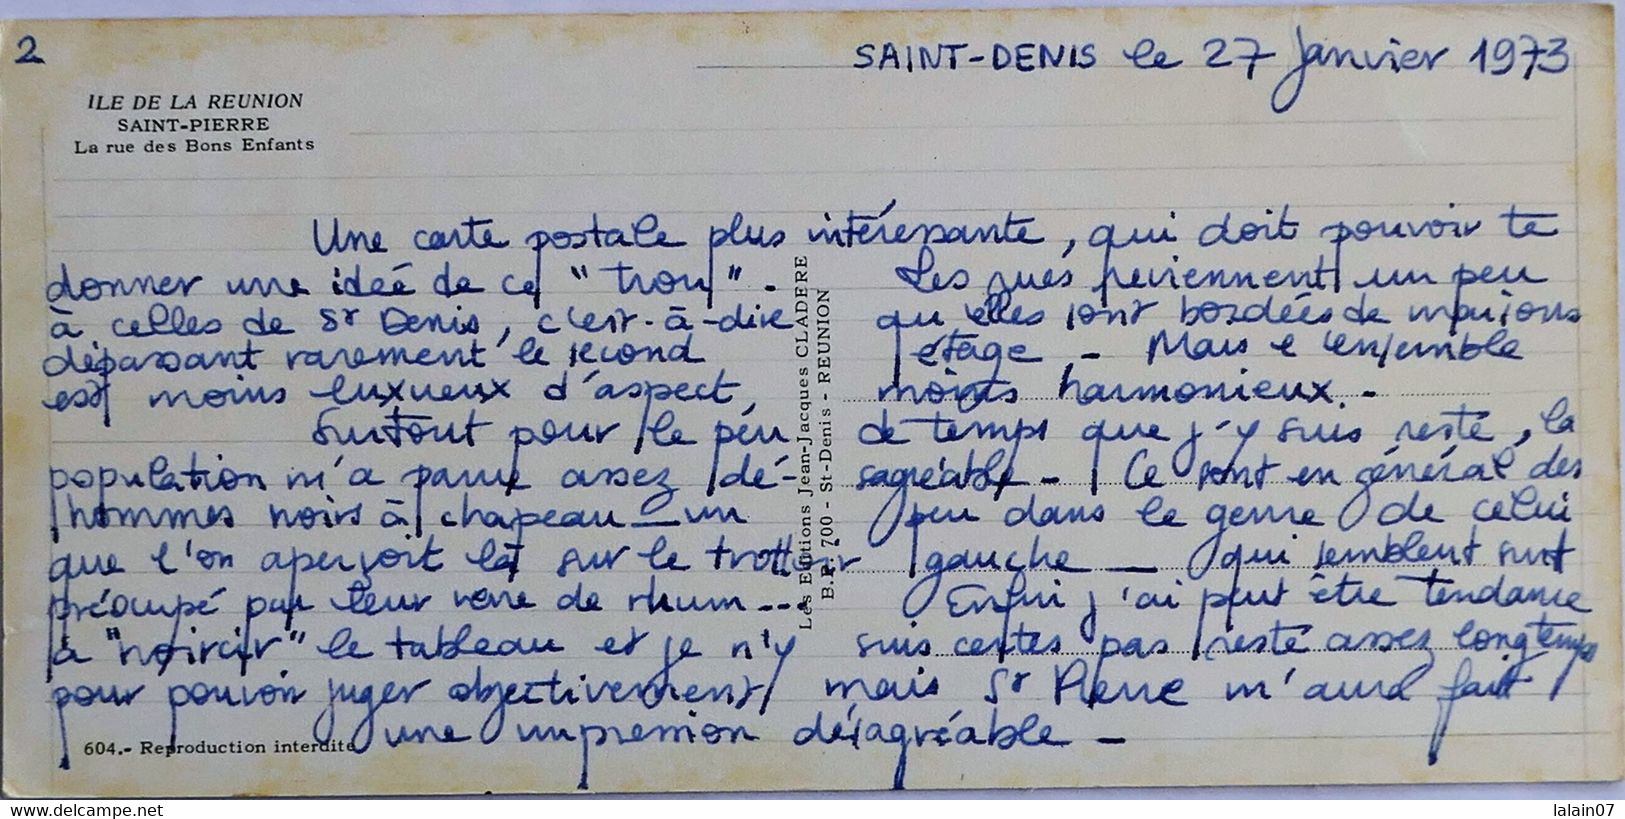 2
SAINT-DENIS le 27 janvier 1973
ILE DE LA REUNION
SAINT-PIERRE
La rue des Bons Enfants
Une carte postale plus intéressante, qui doit pouvoir te
donner une idée de ce "trou". Les rues reviennent un peu
à celles de St Denis, c'est-à-dire qu'elles sont bordées de maisons
dépassant rarement le second étage - Mais l'ensemble
est moins luxueux d'aspect, moins harmonieux. -
Surtout pour le peu de temps que j'y suis resté, la
population m'a parue assez désagréable - Ce sont en général des
hommes noirs à chapeau - un peu dans le genre de celui
que l'on aperçoit là sur le trottoir gauche - qui semblent surt
préoccupé par leur verre de rhum --- Enfin j'ai peut être tendance
à "noircir" le tableau et je n'y suis certes pas resté assez longtemps
pour pouvoir juger objectivement mais St Pierre m'aura fait
une impression désagréable -
Les Editions Jean-Jacques CLADERE
B.P. 700 - St-Denis - REUNION
604.- Reproduction interdite
https://www.delcampe.net
lalain07